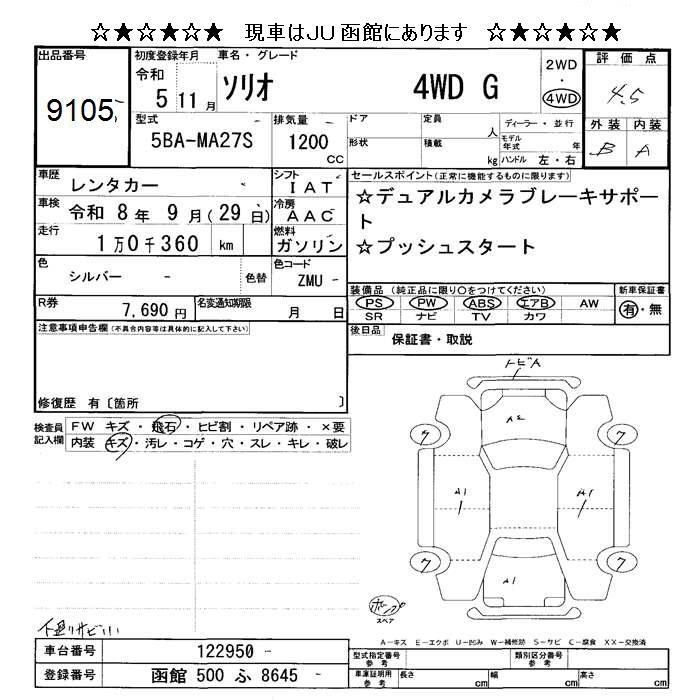 ☆★☆★☆★ 現車はJU函館にあります ☆★☆★☆★
出品番号
9105
初度登録年月
令和
5 11 月
車名・グレード
ソリオ 4WD G
2WD
・
4WD
評価点
4.5
外装 内装
B A
型式
5BA-MA27S
排気量
1200
CC
ドア
形状
定員
人
積載
kg
ディーラー・並行
モデル年式 年
ハンドル 左・右
車歴
レンタカー
シフト
IAT
車検
令和 8年 9月(29日)
冷房
AAC
走行
1万0千360 km
燃料
ガソリン
色
シルバー
色替
色コード
ZMU
R券
7,690円
名変通知期限
月 日
セールスポイント(正常に機能するものに限ります)
☆デュアルカメラブレーキサポー
ト
☆プッシュスタート
装備品(純正品に限り○をつけてください)
PS PW ABS エアB AW
SR ナビ TV カワ
新車保証書
有・無
後日品
保証書・取説
注意事項申告欄(不具合内容等は具体的に記入して下さい)
修復歴 有〔箇所 〕
検査員
記入欄
FW キズ・飛石・ヒビ割・リペア跡・×要
内装 キズ・汚レ・コゲ・穴・スレ・キレ・破レ
トビA
A2
7
7
A1
A1
7
7
A1
スペア
A-キズ E-エクボ U-凹み W-補修跡 S-サビ C-腐食 XX-交換済
車台番号
122950
登録番号
函館 500 ふ 8645
型式指定番号
参考
類別区分番号
参考
車庫証明用
参考
長さ cm
幅 cm
高さ cm